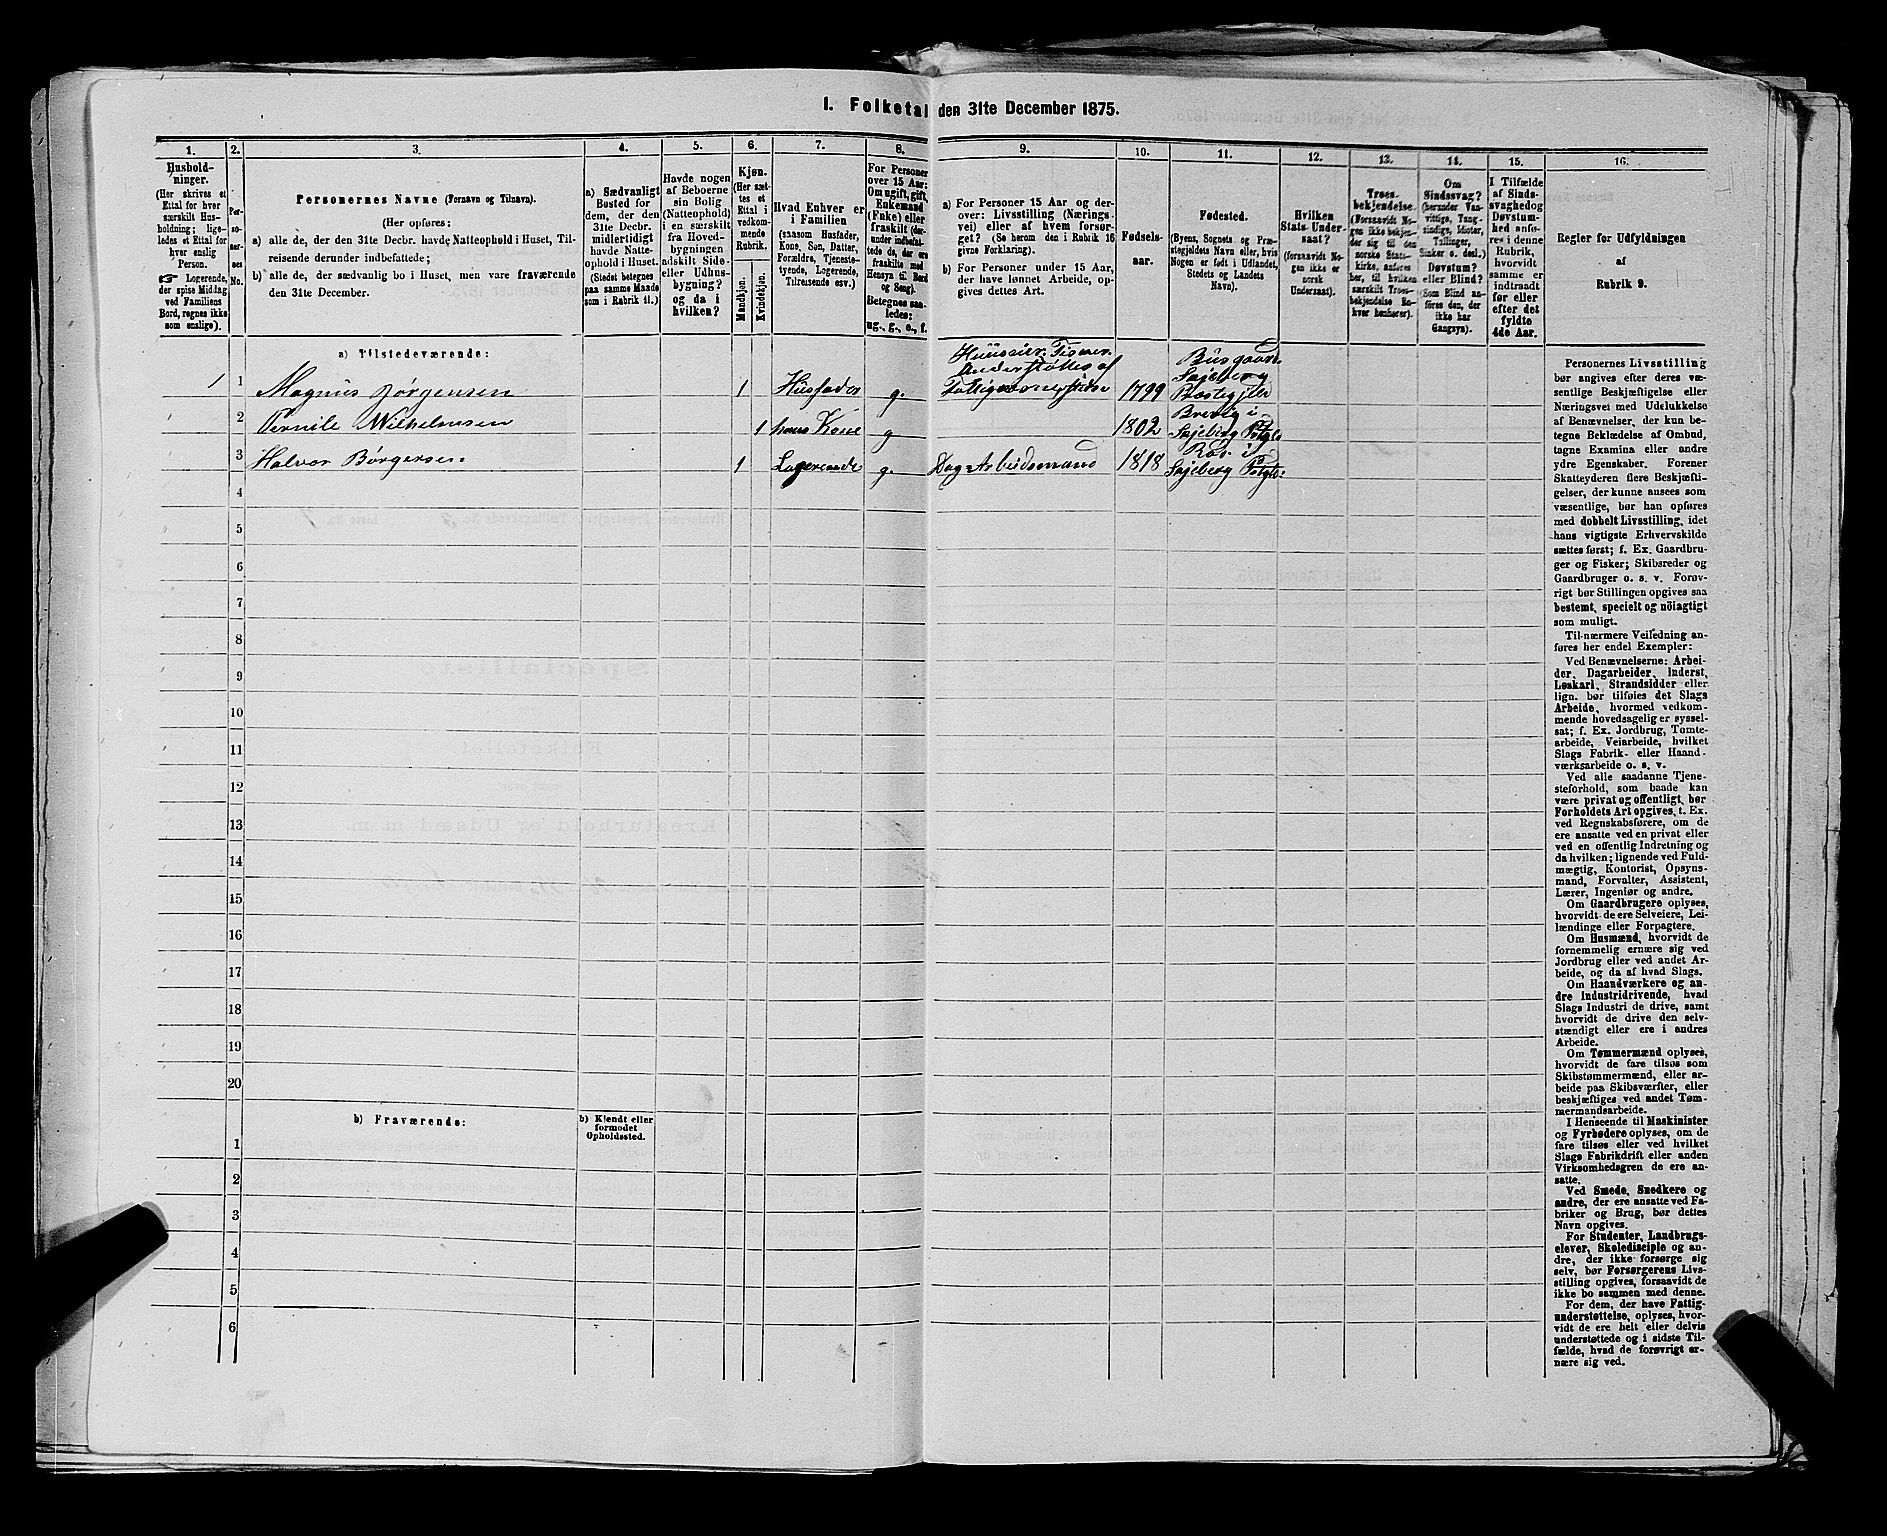 I. Folketal den 31te December 1875.
1. 2. 3. 4. 5. 6. 7. 8. 9. 10. 11. 12. 13. 14. 15. 16.
Husholdninger.
(Her skrives et
Ettal for hver
særskilt Husholdning;
ligeledes et Ettal for
hver enslig
Person.
☞ Logerende,
der spise Middag
ved Familiens
Bord, regnes ikke
som enslige).
Personernes No.
Personernes Navne (Fornavn og Tilnavn).
(Her opføres:
a) alle de, der den 31te Decbr. havde Natteophold i Huset, Tilreisende
derunder indbefattede;
b) alle de, der sædvanlig bo i Huset, men vare fraværende
den 31te December.
a) Sædvanligt
Bosted for
dem, der den
31te Decbr.
midlertidigt
havde Natteophold
i Huset.
(Stedet betegnes
paa samme Maade
som i Rubrik 11.)
Havde nogen
af Beboerne
sin Bolig
(Natteophold)
i en særskilt
fra Hovedbygningen
adskilt Side-
eller Udhusbygning?
og da i
hvilken?
Kjøn.
(Her sættes
et
Ettal i
vedkommende
Rubrik.
Mandkjøn.
Kvindekjøn.
Hvad Enhver er
i Familien
(saasom Husfader,
Kone, Søn, Datter,
Forældre, Tjenestetyende,
Logerende,
Tilreisende osv.)
For Personer
over 15 Aar:
Om ugift, gift,
Enkemand
(Enke) eller
fraskilt (derunder
indbefattede
de, der ere
fraskilte med
Hensyn til Bord
og Seng).
Betegnes saaledes:
ug., g., e., f.
a) For Personer 15 Aar og derover:
Livsstilling (Næringsvei)
eller af hvem forsørget?
(Se herom den i Rubrik 16
givne Forklaring).
b) For Personer under 15 Aar,
der have lønnet Arbeide, opgives
dettes Art.
Fødselsaar.
Fødested.
(Byens, Sognets og Præstegjeldets
Navn eller, hvis
Nogen er født i Udlandet,
Stedets og Landets
Navn).
Hvilken
Stats Undersaat?
(forsaavidt Nogen
ikke er
norsk
Undersaat).
Troesbekjendelse.
(Forsaavidt Nogen
ikke bekjender
sig til den
norske Statskirke,
anføres
her, til hvilken
særskilt Troesbekjendelse
Enhver
henhører).
Om
Sindssvag?
(herunder Vanvittige,
Tungsindige,
Idioter,
Tullinger,
Sinker o. desl.)
Døvstum?
eller Blind?
(Som Blind anføres
den, der
ikke har
Gangsyn).
I Tilfælde
af Sindssvaghed
og
Døvstumhed
anføres
i denne
Rubrik,
hvorvidt
samme er
indtraadt
før eller
efter det
fyldte
4de Aar.
Regler for Udfyldningen
af
Rubrik 9.
a) Tilstedeværende:
1 1 Magnus Jørgensen 1 Husfader g. Huuseier. Understøttes af 1799 Sajeberg
2 Pernile Wilhelmsen 1 hans Kone g 1802 Brevig i Sajeberg
3 Halvor Børgersen 1 Logerende g. Dag Arbeidsmand 1818 Sajeberg
4
5
6
7
8
9
10
11
12
13
14
15
16
17
18
19
20
b) Fraværende: b) Kjendt eller
formodet
Opholdssted.
1
2
3
4
5
6
Personernes Livsstilling
bør angives efter deres væsentlige
Beskjæftigelse eller
Næringsvei med Udelukkelse
af Benævnelser, der kun betegne
Beklædelse af Ombud,
tagne Examina eller andre
ydre Egenskaber. Forener
Skatteyderen flere Beskjæftigelser,
der kunne ansees som
væsentlige, bør han opføres
med dobbelt Livsstilling, idet
hans vigtigste Erhvervskilde
sættes først; f. Ex. Gaardbruger
og Fisker; Skibsreder og
Gaardbruger o. s. v. Forøvrigt
bør Stillingen opgives saa
bestemt, specielt og nöiagtigt
som muligt.
Til nærmere Veiledning anføres
her endel Exempler:
Ved Benævnelserne: Arbeider,
Dagarbeider, Inderst,
Løskarl, Strandsidder eller
lign. bør tilføies det Slags
Arbeide, hvormed vedkommende
hovedsagelig er sysselsat;
f. Ex. Jordbrug, Tomtearbeide,
Veiarbeide, hvilket
Slags Fabrik- eller Haandværksarbeide
o. s. v.
Ved alle saadanne Tjenesteforhold,
som baade kan
være privat og offentligt, bør
Forholdets Art opgives, t. Ex.
ved Regnskabsførere, om de
ere ansatte ved en privat eller
ved en offentlig Indretning og
da hvilken; lignende ved Fuldmægtig,
Kontorist, Opsynsmand,
Forvalter, Assistent,
Lærer, Ingeniør og andre.
Om Gaardbrugere oplyses,
hvorvidt de ere Selveiere, Leilændinge
eller Forpagtere.
Om Husmænd, hvorvidt de
fornemmelig ernære sig ved
Jordbrug eller ved andet Arbeide,
og da af hvad Slags.
Om Haandværkere og andre
Industridrivende, hvad
Slags Industri de drive, samt
hvorvidt de drive den selvstændigt
eller ere i andres
Arbeide.
Om Tømmermænd oplyses,
hvorvidt de fare tilsøs som
Skibstømmermænd, eller arbeide
paa Skibsværfter, eller
beskjæftiges ved andet Tømmermandsarbeide.
I Henseende til Maskinister
og Fyrbødere oplyses, om de
fare tilsøs eller ved hvilket
Slags Fabrikdrift eller anden
Virksomhedsgren de ere ansatte.
Ved Smede, Snedkere og
andre, der ere ansatte ved Fabriker
og Brug, bør dettes
Navn opgives.
For Studenter, Landbrugselever,
Skoledisciple og andre,
der ikke forsørge sig
selv, bør Forsørgerens Livsstilling
opgives, forsaavidt de
ikke bo sammen med denne.
For dem, der have Fattigunderstøttelse,
oplyses, hvorvidt
de ere helt eller delvis
understøttede og i sidste Tilfælde,
hvad de forøvrigt ernære
sig ved.